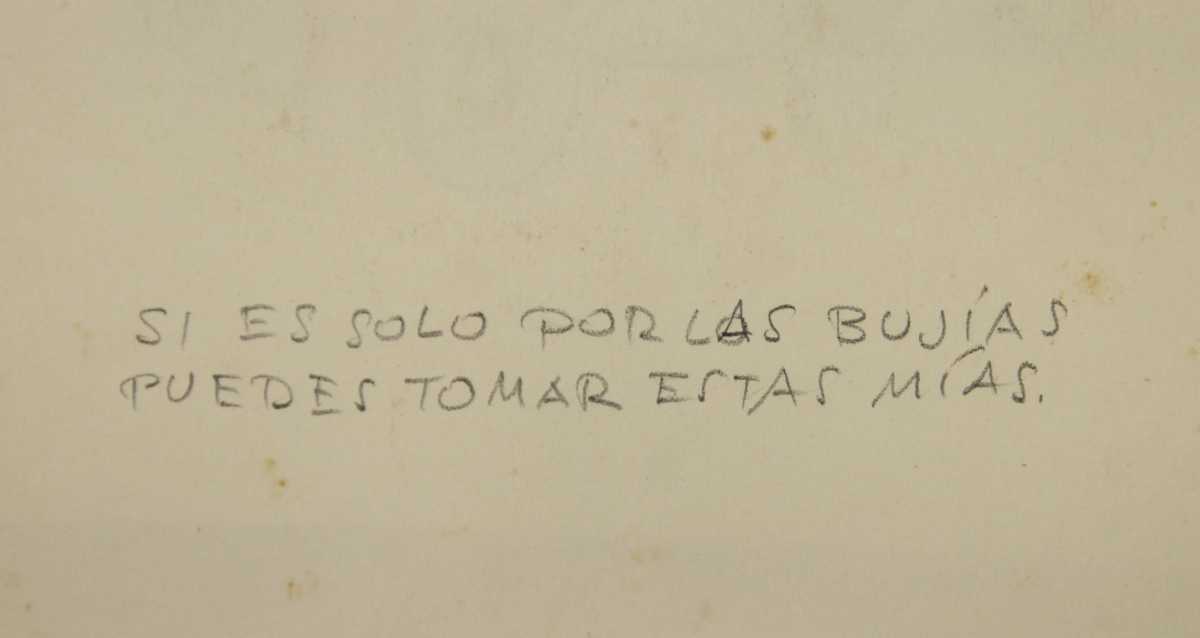 SI ES SOLO POR LAS BUJÍAS
PUEDES TOMAR ESTAS MÍAS.